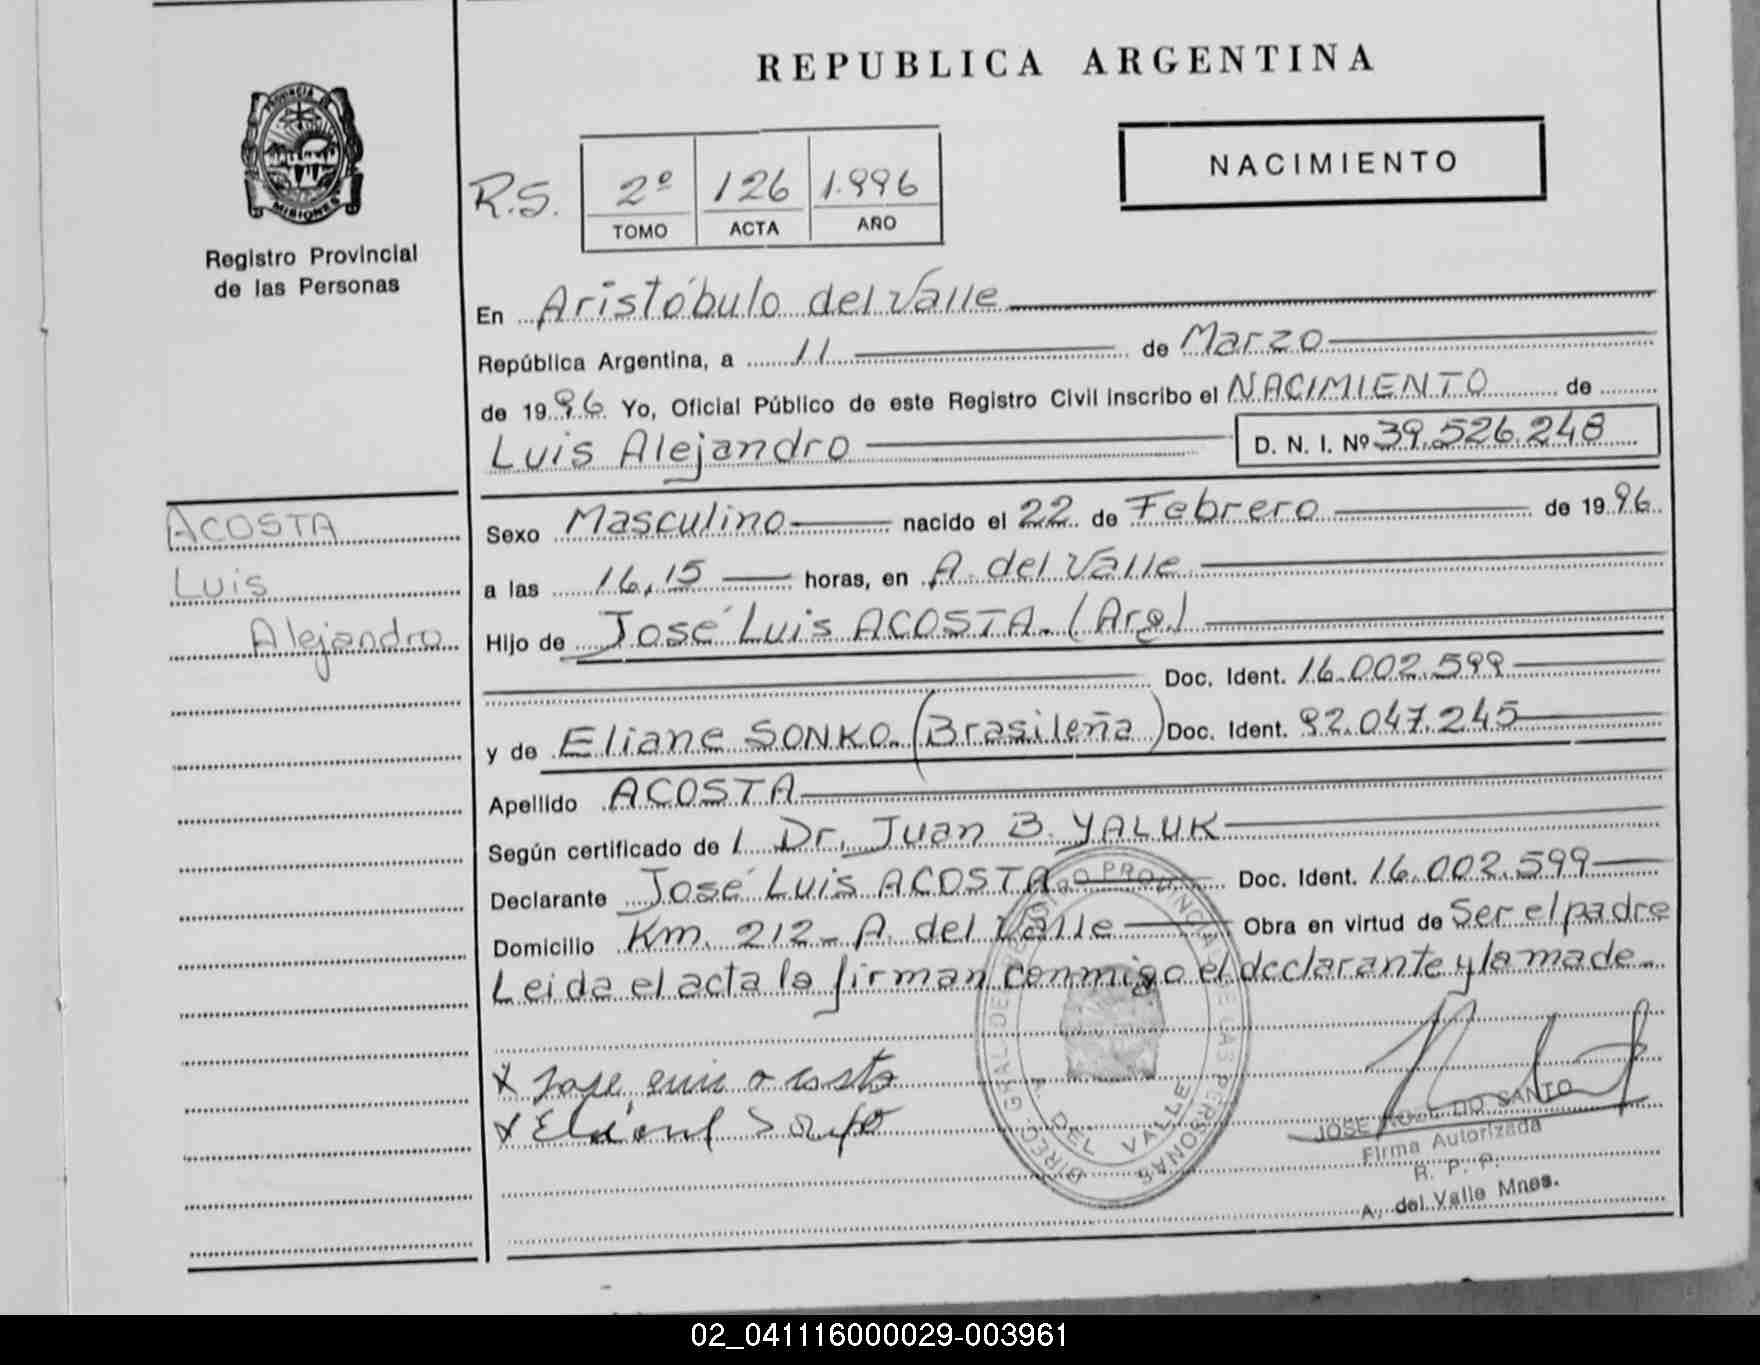 REPUBLICA ARGENTINA
PROVINCIA DE
MISIONES
Registro Provincial
de las Personas
NACIMIENTO
R.S. 2º 126 1.996
TOMO ACTA AÑO
En Aristóbulo del Valle
República Argentina, a 11 de Marzo
de 1996 Yo, Oficial Público de este Registro Civil inscribo el NACIMIENTO de
Luis Alejandro D. N. I. Nº 39.526.248
ACOSTA
Luis
Alejandro
Sexo Masculino nacido el 22 de Febrero de 1996
a las 16,15 horas, en A. del Valle
Hijo de José Luis ACOSTA. (Arg.)
Doc. Ident. 16.002.599
y de Eliane SONKO. (Brasileña) Doc. Ident. 92.047.245
Apellido ACOSTA
Según certificado de / Dr. Juan B. YALUK
Declarante José Luis ACOSTA Doc. Ident. 16.002.599
Domicilio Km. 212 - A. del Valle Obra en virtud de Ser el padre
Leida el acta la firman conmigo el declarante y la made
DIREC. GRAL. DEL REGISTRO PROVINCIAL DE LAS PERSONAS
A. DEL VALLE
x Jose luis acosta
x
JOSE DO SANTO
Firma Autorizada
R. P. P.
A. del Valle Mnes.
02_041116000029-003961